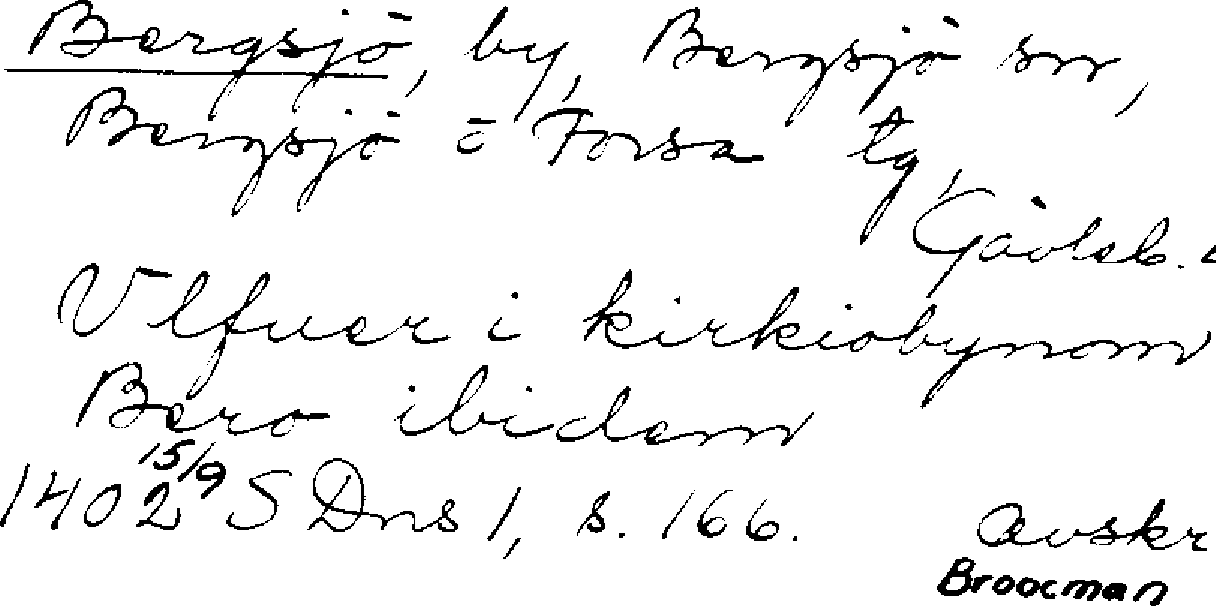 Bergsjö, by, Bergsjö sn,
Bergsjö o Forsa tg,
Gävleb. l
Vlfuer i kirkiobynom
Bero ibidem
1402 15/9 S Dns 1, s. 166.
avskr
Broocman